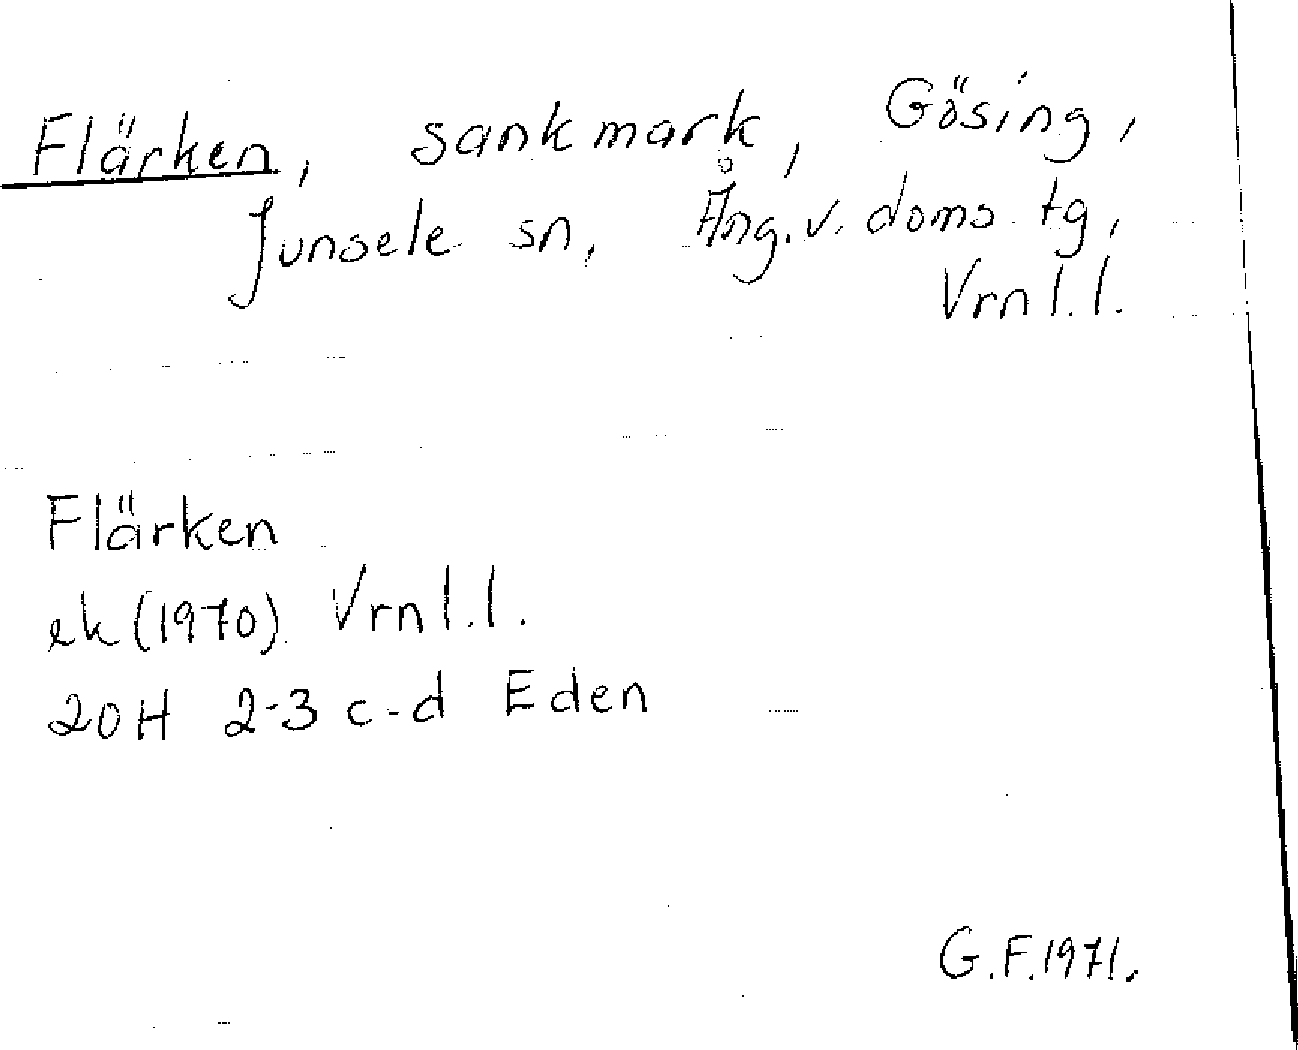 Flärken, sankmark, Gösing,
Junsele sn, Ång. v. doms. tg,
Vrnl.l.
Flärken
ek (1970) Vrnl.l.
20H 2-3 c-d Eden
G.F. 1971.